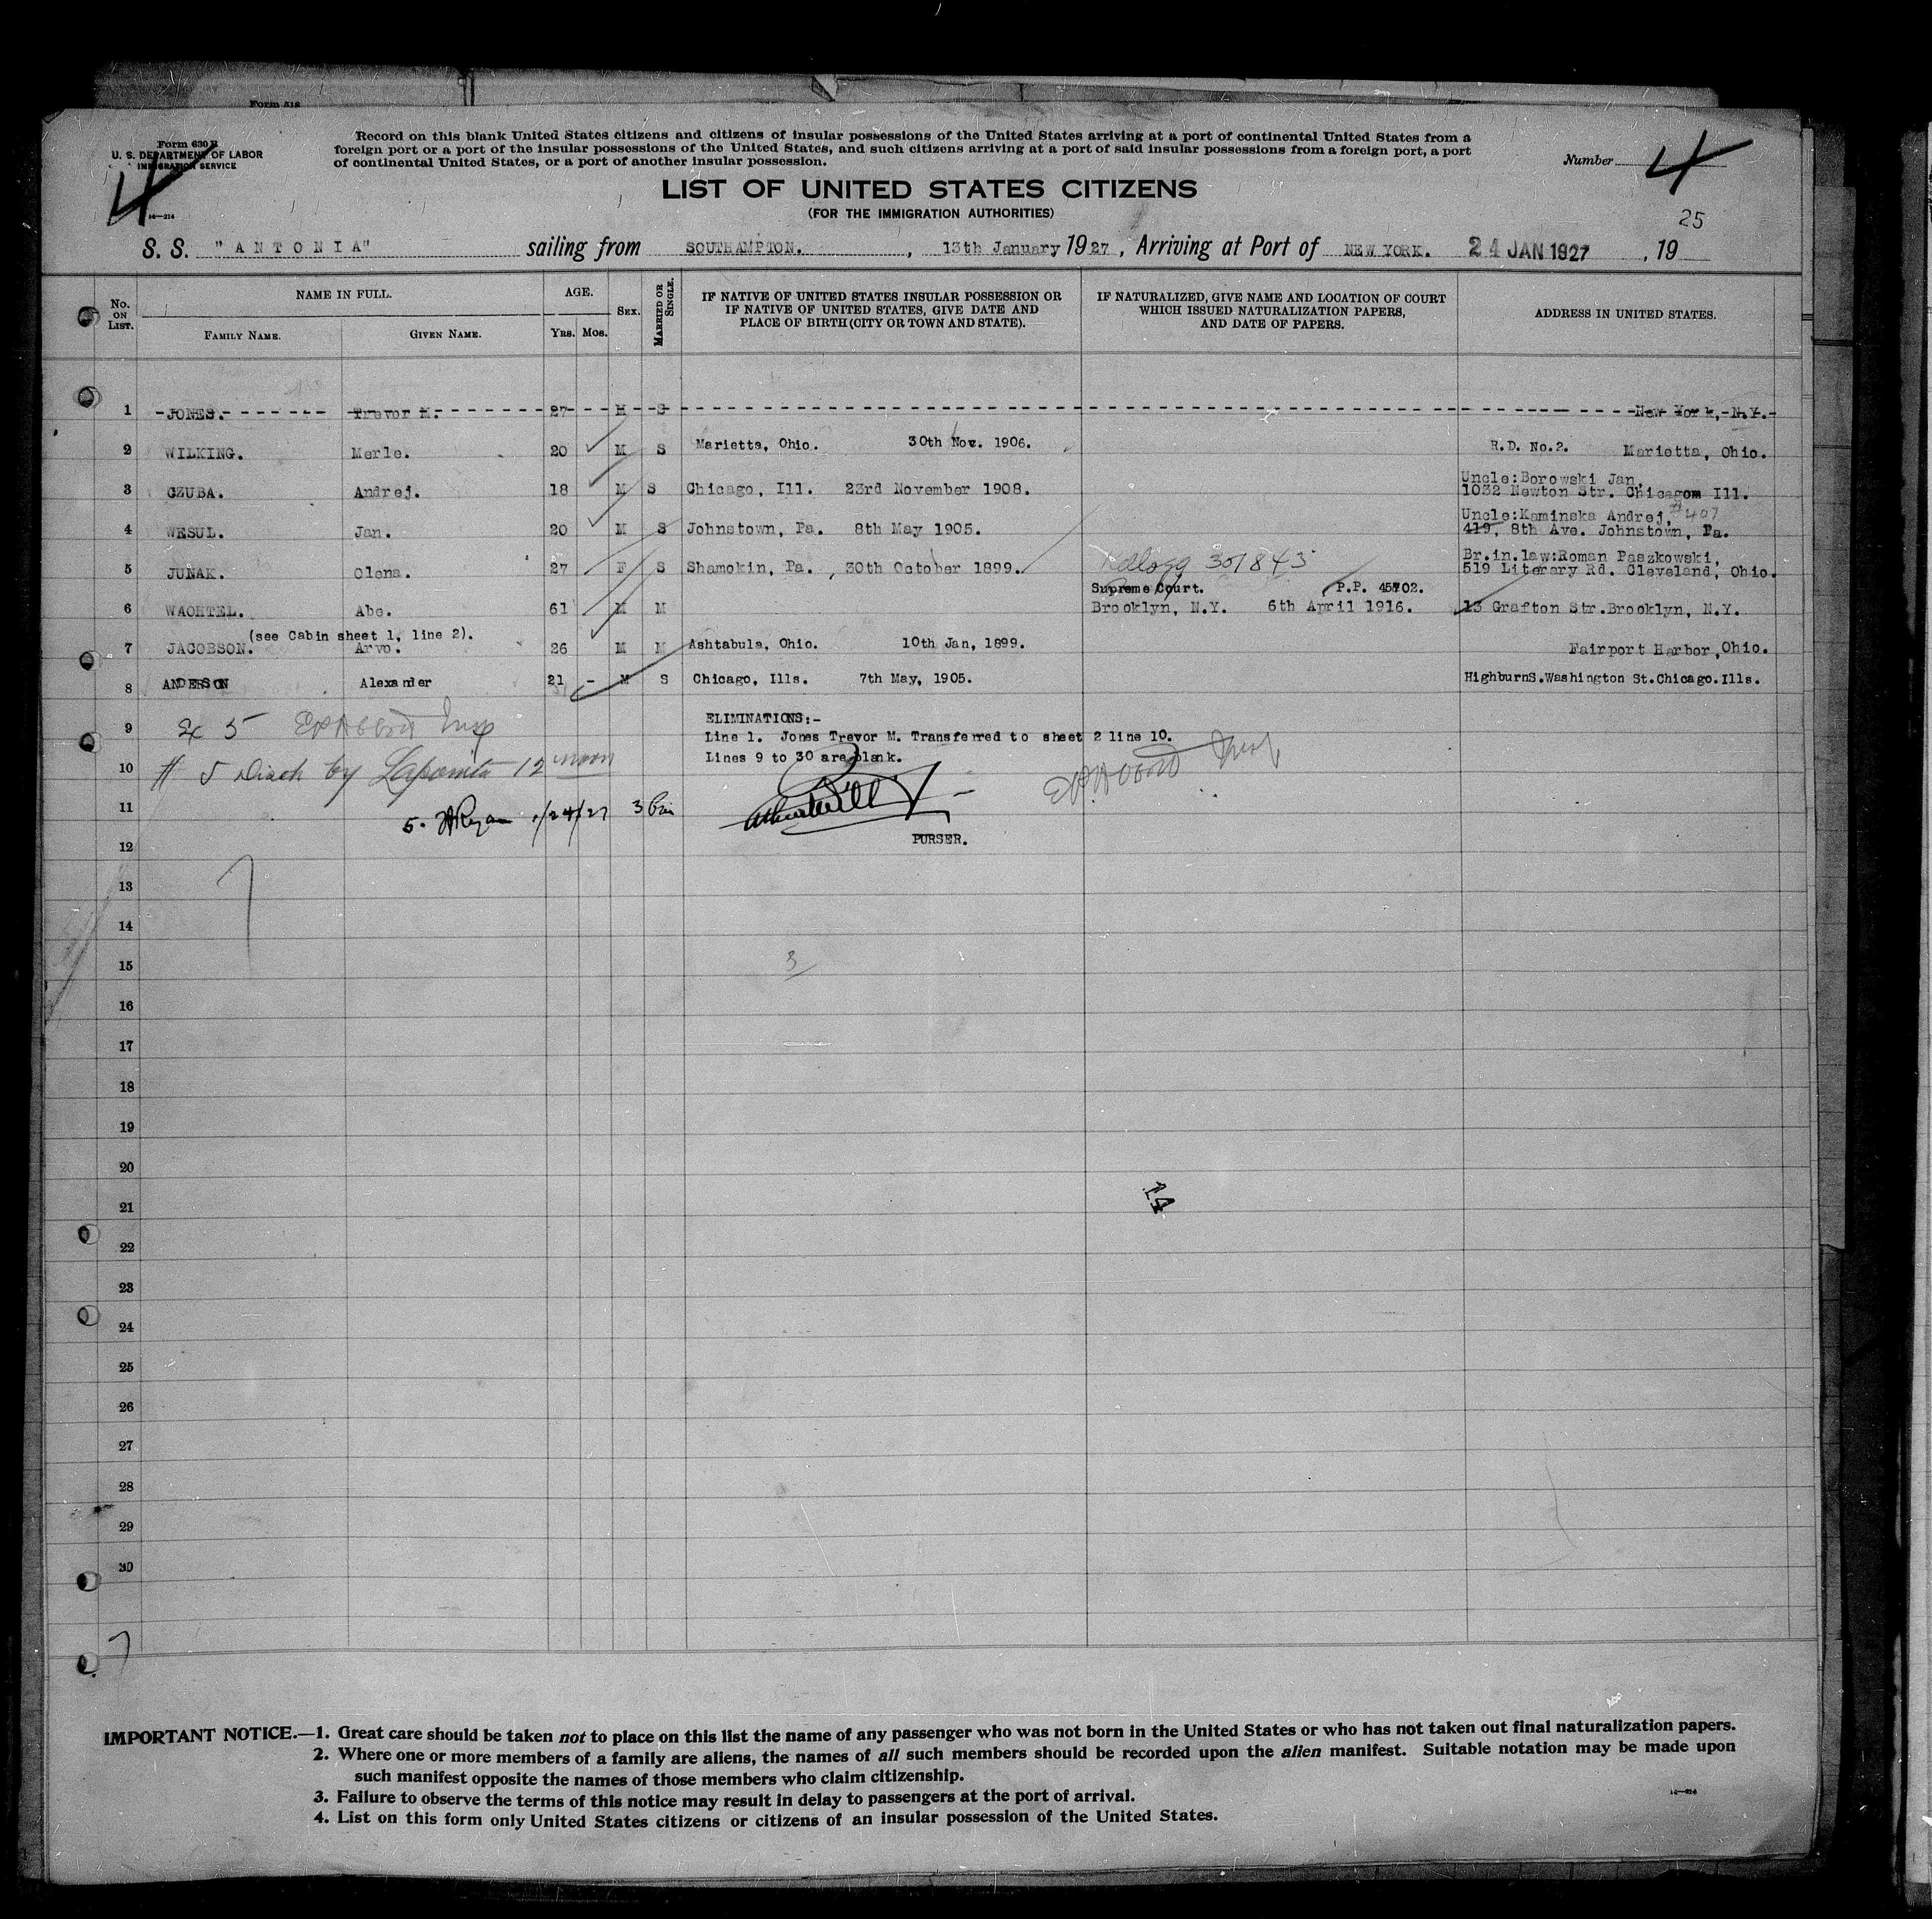 Form 518
Form 630 B
U. S. DEPARTMENT OF LABOR
IMMIGRATION SERVICE
14—214
4
Record on this blank United States citizens and citizens of insular possessions of the United States arriving at a port of continental United States from a
foreign port or a port of the insular possessions of the United States, and such citizens arriving at a port of said insular possessions from a foreign port, a port
of continental United States, or a port of another insular possession.
Number 4
LIST OF UNITED STATES CITIZENS
(FOR THE IMMIGRATION AUTHORITIES)
25
S. S. "ANTONIA" sailing from SOUTHAMPTON. , 13th January 1927, Arriving at Port of NEW YORK. 24 JAN 1927 , 19
No. ON LIST.
NAME IN FULL.
FAMILY NAME.
GIVEN NAME.
AGE.
YRS. MOS.
SEX.
MARRIED OR SINGLE.
IF NATIVE OF UNITED STATES INSULAR POSSESSION OR
IF NATIVE OF UNITED STATES, GIVE DATE AND
PLACE OF BIRTH (CITY OR TOWN AND STATE).
IF NATURALIZED, GIVE NAME AND LOCATION OF COURT
WHICH ISSUED NATURALIZATION PAPERS,
AND DATE OF PAPERS.
ADDRESS IN UNITED STATES.
1 JONES. Trevor M. 27 M S New York, N.Y.
2 WILKING. Merle. 20 M S Marietta, Ohio. 30th Nov. 1906. R.D. No.2. Marietta, Ohio.
Uncle:Borowski Jan,
3 CZUBA. Andrej. 18 M S Chicago, Ill. 23rd November 1908. 1032 Newton Str. Chicagom Ill.
Uncle:Kaminska Andrej, #407
4 WESUL. Jan. 20 M S Johnstown, Pa. 8th May 1905. 419, 8th Ave. Johnstown, Pa.
Br.in.law:Roman Paszkowski,
5 JUNAK. Olena. 27 F S Shamokin, Pa. , 30th October 1899. Kellogg 301843 519 Literary Rd. Cleveland, Ohio.
Supreme Court. P.P. 45702.
6 WACHTEL. Abe. 61 M M Brooklyn, N.Y. 6th April 1916. 13 Grafton Str.Brooklyn, N.Y.
(see Cabin sheet 1, line 2).
7 JACOBSON. Arvo. 26 M M Ashtabula, Ohio. 10th Jan, 1899. Fairport Harbor, Ohio.
8 ANDERSON Alexander 21 - M S Chicago, Ills. 7th May, 1905. HighburnS.Washington St.Chicago.Ills.
ELIMINATIONS:-
9 5 Insp
Line 1. Jones Trevor M. Transferred to sheet 2 line 10.
Lines 9 to 30 are blank.
10 # 5 Disch by 12 noon
11 5. Ryan 1/24/27
PURSER.
12
13
14
15 3
16
17
18
19
20
21 14
22
23
24
25
26
27
28
29
30
IMPORTANT NOTICE.—1. Great care should be taken not to place on this list the name of any passenger who was not born in the United States or who has not taken out final naturalization papers.
2. Where one or more members of a family are aliens, the names of all such members should be recorded upon the alien manifest. Suitable notation may be made upon
such manifest opposite the names of those members who claim citizenship.
3. Failure to observe the terms of this notice may result in delay to passengers at the port of arrival.
4. List on this form only United States citizens or citizens of an insular possession of the United States.
14—214